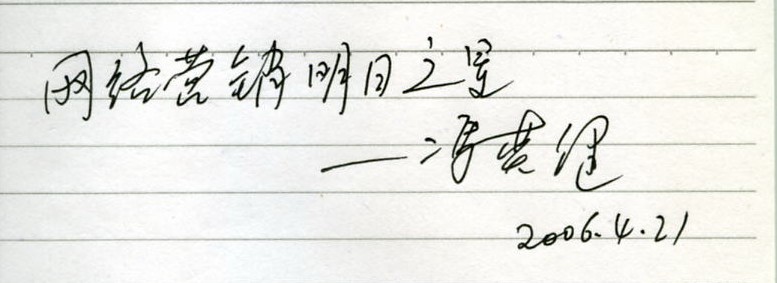 网络营销明日之星
——冯英健
2006.4.21